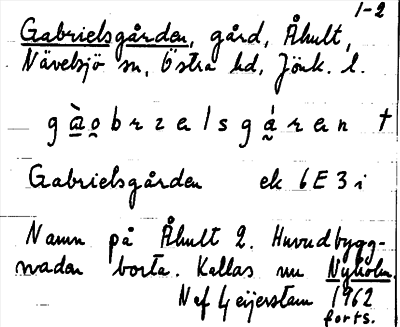 1-2
Gabrielsgården, gård, Åhult,
Nävelsjö sn, Östra hd, Jönk. l.
g à o b r z a l s g á r a n †
Gabrielsgården ek 6E3i
Namn på Åhult 2. Huvudbygg-
naden borta. Kallas nu Nyholm.
N af Geijerstam 1962
forts.